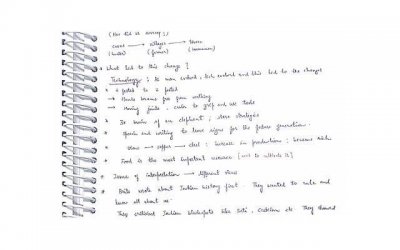 (How did it occur?)
caves → villages → towns
(hunter) (farmer) (businessman)
* What led to this change?
Technology: As man evolved, tech evolved and this led to the changes
* 4 footed to 2 footed
→ Hands became for non walking
→ Moving joints, easier to grip and use tools
* Brain of an elephant; more strategies
* Speech and writing to leave signs for the future generation.
* Stone → copper → steel : increase in production : become rich
* Food is the most important resource
* Issue of interpretation → different views
* Brits wrote about Indian history first. They wanted to rule and
know all about us.
They criticised Indian like Sati, etc. They showed